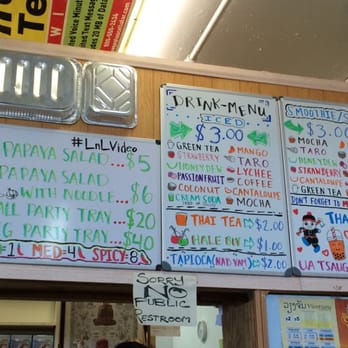 ited Voice Minu
ited Text Message
ludes 20 MB of Data
#LnLVideo
PAPAYA SALAD...$5
PAPAYA SALAD
WITH NOODLE..$6
ALL PARTY TRAY...$20
G PARTY TRAY...$40
=1 MED=4 SPICY=8
DRINK-MENU
ICED
$3.00
GREEN TEA
STRAWBERRY
HONEYDEW
PASSIONFRUIT
COCONUT
CREAM SODA
MANGO
TARO
LYCHEE
COFFEE
CANTALOUPE
MOCHA
THAI TEA...$2.00
HALE BIY...$1.00
TAPIOCA (NAD VAM)...$2.00
SMOOTHIE/S
$3.00
MOCHA
TARO
HONEYDEW
STRAWBERR
CANTALOUPE
GREEN TEA
DON'T FORGET TO
THA
UA TSAUG
SORRY
NO
PUBLIC
RESTROOM